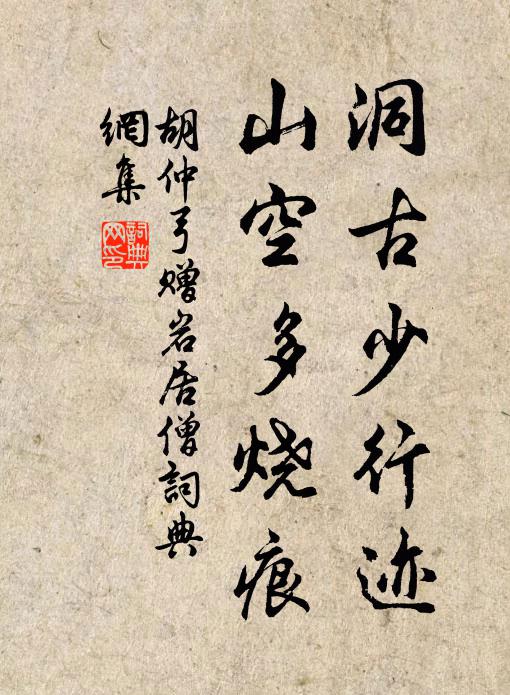 洞古少行迹
山空多烧痕
胡仲弓赠岩居僧詞典
網集
詞典
网印